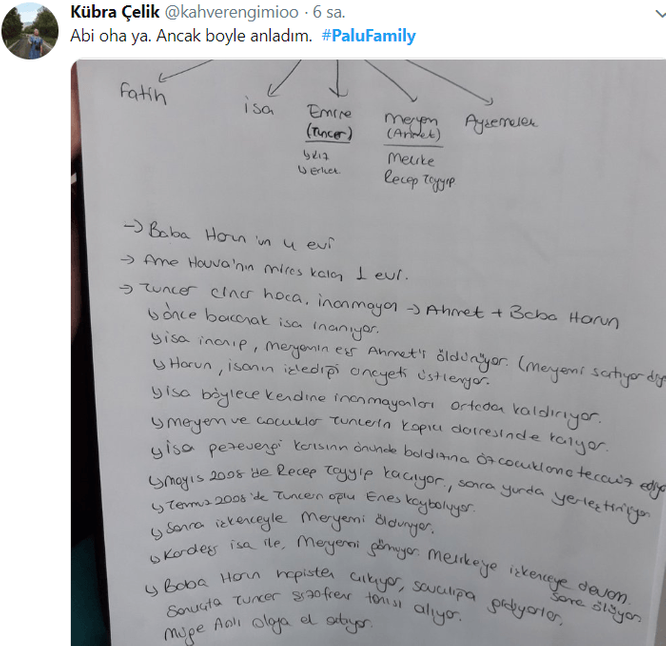 Kübra Çelik @kahverengimioo · 6 sa.
Abi oha ya. Ancak boyle anladım. #PaluFamily
Fatih isa Emine Meryem Ayşemelek
(Tuncer) (Ahmet)
Melike
Recep Tayyip
→ Baba Harun'un 4 evi
→ Anne Havva'nın miras kalan 1 evi.
→ Tuncer cinci hoca, inanmayan → Ahmet + Baba Harun
↳ önce bacanak isa inanıyor.
↳ isa inanıp, meryemin eşi Ahmet'i öldürüyor. (meryemi satıyor diye
↳ Harun, isanın işlediği cinayeti üstleniyor.
↳ isa böylece kendine inanmayanları ortadan kaldırıyor.
↳ meryem ve çocuklar Tuncerin kapıcı dairesinde kalıyor.
↳ isa pezevengi karısının önünde baldızına öz çocuklarına tecavüz ediyor
↳ mayıs 2008'de Recep Tayyip kaçıyor, sonra yurda yerleştiriliyor.
↳ Temmuz 2008'de Tuncerin oğlu Enes kayboluyor.
↳ Sonra işkenceyle Meryemi öldürüyor.
↳ Kardeş isa ile, Meryemi gömüyor. Melikeye işkenceye devam.
sonra ölüyor.
↳ Baba Harun hapisten çıkıyor, savcılığa gidiyorlar,
Sonuçta Tuncer şizofreni tanısı alıyor.
Müge Anlı olaya el atıyor.